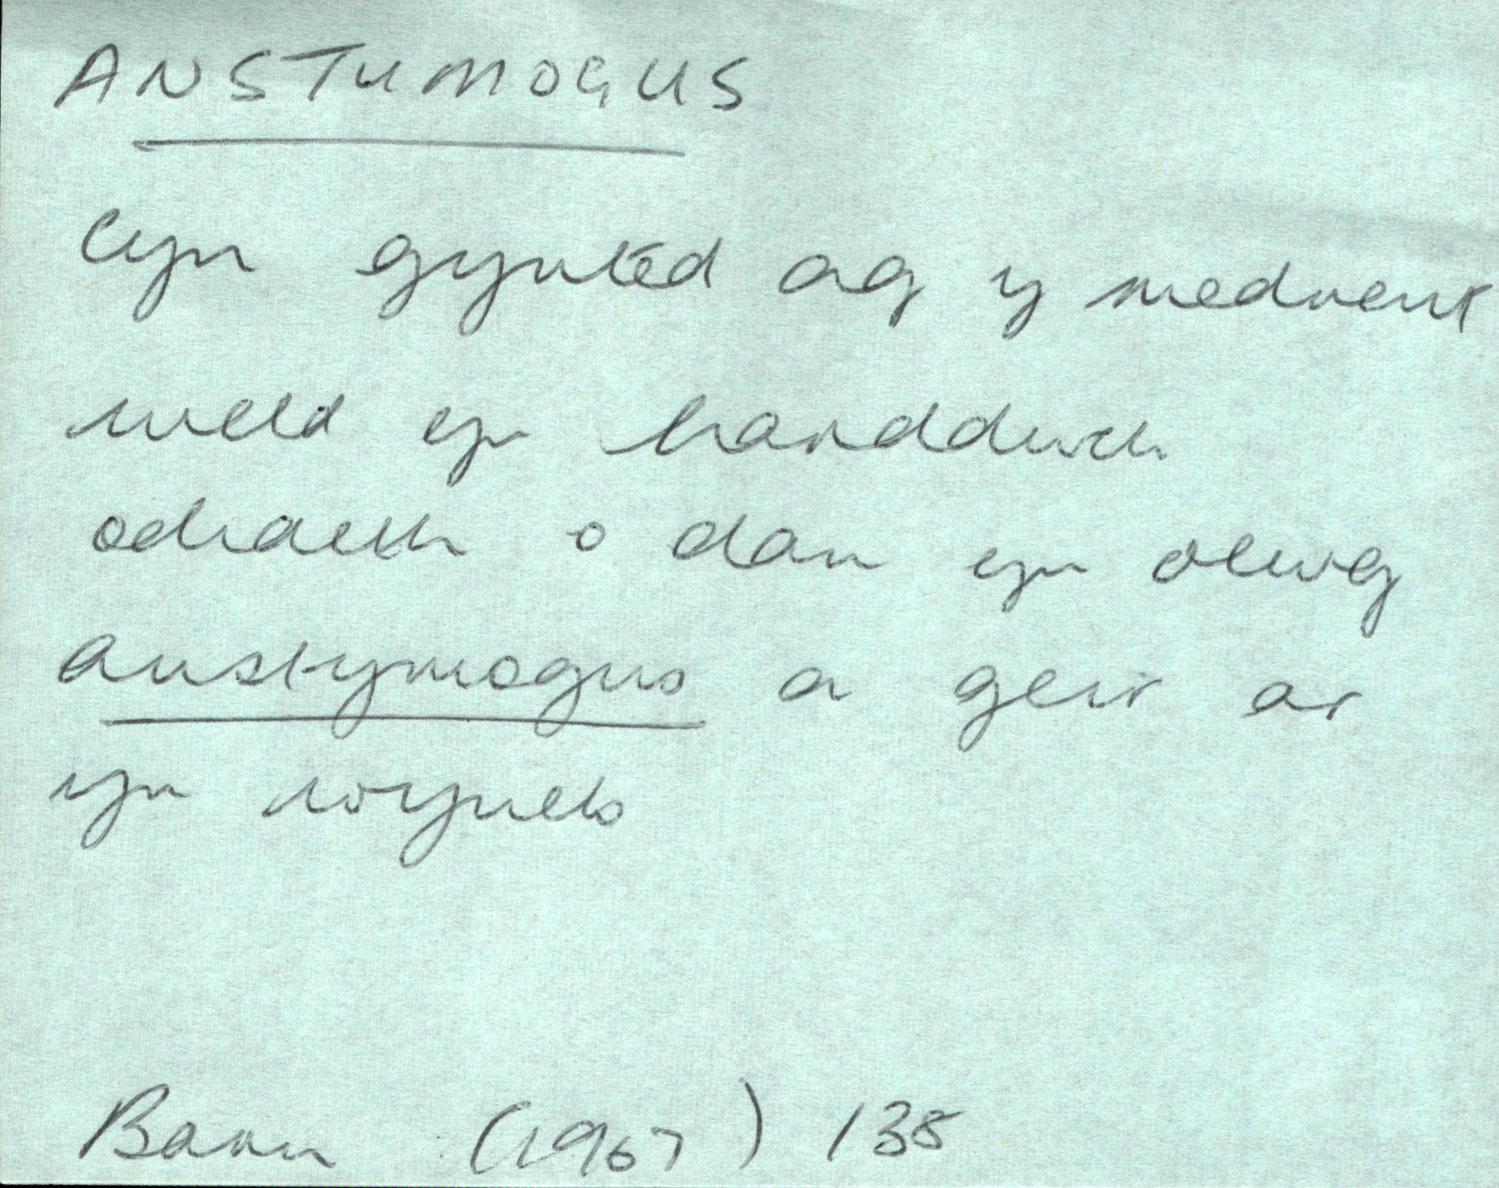 ANSTUMOGUS
Cyn gynted ag y medrent
weld yn harddwch
odiaeth o dan yn olwg
anstymogus a geir ar
yn wyneb
Barn (1967) 138